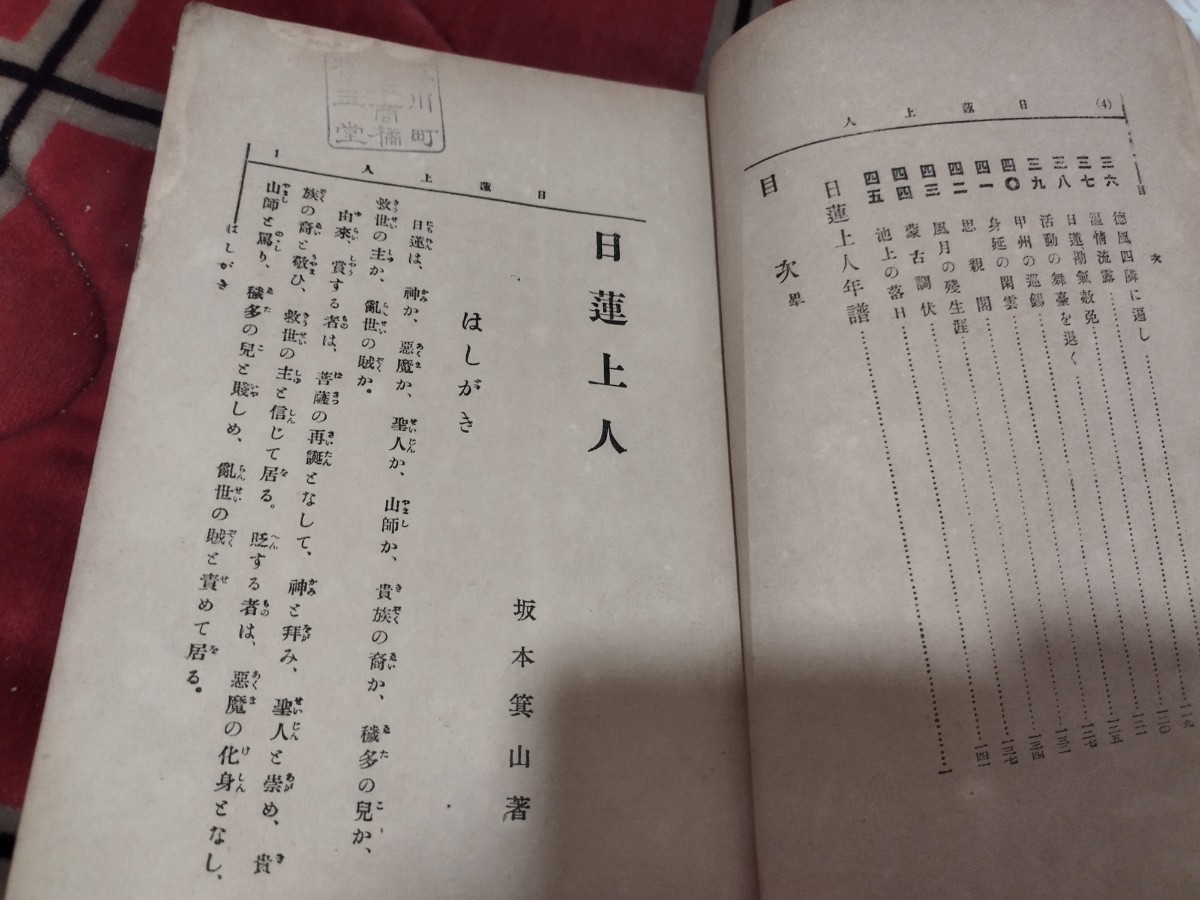 (4) 日蓮上人
目次
三六 德風四隣に逼し
三七 溫情流露
三八 日蓮勘氣赦免
三九 活動の舞臺を退く
四〇 甲州の巡錫
四一 身延の閑雲
四二 思親閣
四三 風月の殘生涯
四四 蒙古調伏
四五 池上の落日
日蓮上人年譜
目次畢
一二〇
一二七
一三七
一四一
一
川町
商橘
堂
日蓮上人 1
日蓮上人
坂本箕山著
はしがき
日蓮は、神か、惡魔か、聖人か、山師か、貴族の裔か、穢多の兒か、
救世の主か、亂世の賊か。
由來、賞する者は、菩薩の再誕となして、神と拜み、聖人と崇め、貴
族の裔と敬ひ、救世の主と信じて居る。貶する者は、惡魔の化身となし、
山師と罵り、穢多の兒と賤しめ、亂世の賊と責めて居る。
はしがき